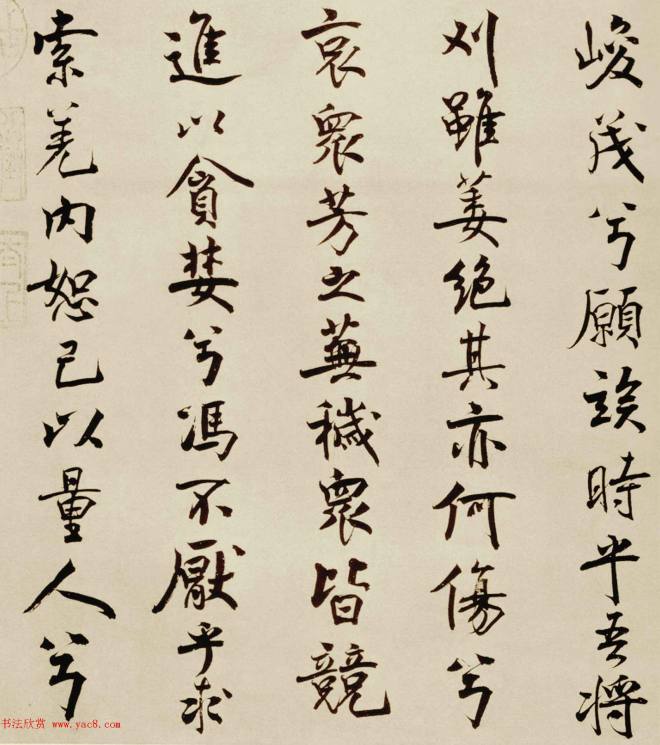 峻茂兮願竢時乎吾將
刈雖萎絕其亦何傷兮
哀眾芳之蕪穢眾皆競
進以貪婪兮馮不厭乎求
索羌內恕己以量人兮
书法欣赏 www.yac8.com